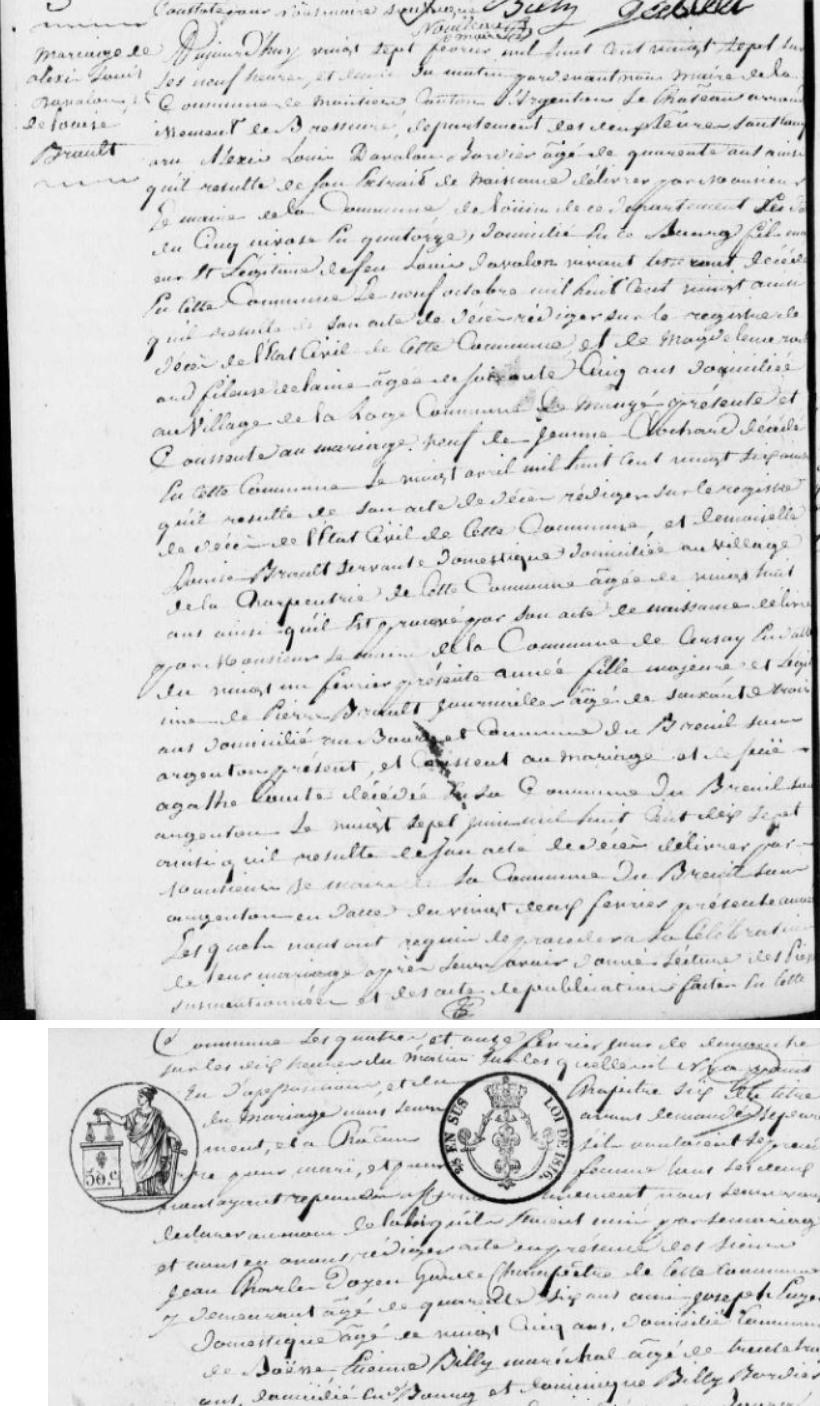 Constate pour
Billy
mariage de
alexi Louis
Davalon, et
de Louise
Brault
Aujourd'huy vingt sept février mil huit cent vingt sept sur
les neuf heures et demie du matin pardevant nous maire de la
Commune de moutiers Canton d'Argenton Le Château arrond
issement de Bressuire, département des deux Sèvres sont comp
aru Alexis Louis Davalon Bordier âgé de quarente ans ainsi
qu'il resulte de son Extrait de Naissance délivrer par Monsieur
Le maire de la Commune de de ce département
du Cinq nivose En quatorze, domicilié En ce Bourg fils ma
eur Et Légitime de feu Louis Davalon vivant décédé
En Cette Commune Le neuf octobre mil huit Cent vingt ainsi
qu'il resulte de son acte de décès rédiger sur le registre de
décès de l'Etat Civil de Cette Commune et de Magdeleine
fileuse de laine âgée de soixante Cinq ans domiciliée
au Village de la Loge Commune de présente et
Consente au mariage. veuf de Jeanne Clochard décédé
En Cette Commune Le vingt avril mil huit Cent vingt six ainsi
qu'il resulte de son acte de décès rédiger sur le registre
de décès de l'Etat Civil de Cette Commune, et demoiselle
Louise Brault servante domestique domiciliée au village
de la Charpentrie de Cette Commune âgée de vingt huit
ans ainsi qu'il Est prouvé par son acte de naissance délivré
par Monsieur Le maire de la Commune de En datte
du vingt un février présente année fille majeure et Légi
ime de Pierre Brault journallier âgé de soixante trois
ans domicilié au Bourg et Commune du Breuil sous
argenton présent, et Consent au mariage et de feüe
agathe Comte décédée En la Commune du Breuil sous
argenton Le vingt sept juin mil huit Cent dix sept
ainsi qu'il resulte de son acte de décès délivrer par
Monsieur Le maire de La Commune du Breuil sous
argenton en datte du vingt deux février présente année
Lesquels nous ont requis de proceder a La Célébration
de leur mariage après leur avoir donné Lecture des Pièces
susmentionnées et des acte de publication faites En Cette
Commune Les quatre et onze février jour de dimanche
sur les dix heures du matin sur lesquelles il n'y a point
Eu d'opposition, et du Chapitre six du titre
du mariage nous leur avons demandé séparé
ment, et a Chacun s'ils voulaient se prendre
pour mari, et pour femme tous les deux
nous ayant repondu affirmativement nous leur avons
declarer au nom de la loi qu'ils Etaient unis par le mariage
et nous en avons rédiger acte en présence des sieurs
Jean Charles Doyen Garde Champêtre de Cette Commune
y demeurant âgé de quarente six ans Joseph
Domestique âgé de vingt Cinq ans, domicilié Commune
de Boësse Etienne Billy maréchal âgé de trente trois
ans, domicilié En Ce Bourg et Dominique Billy Bordier
50.c
EN SUS
LOI DE 1816.